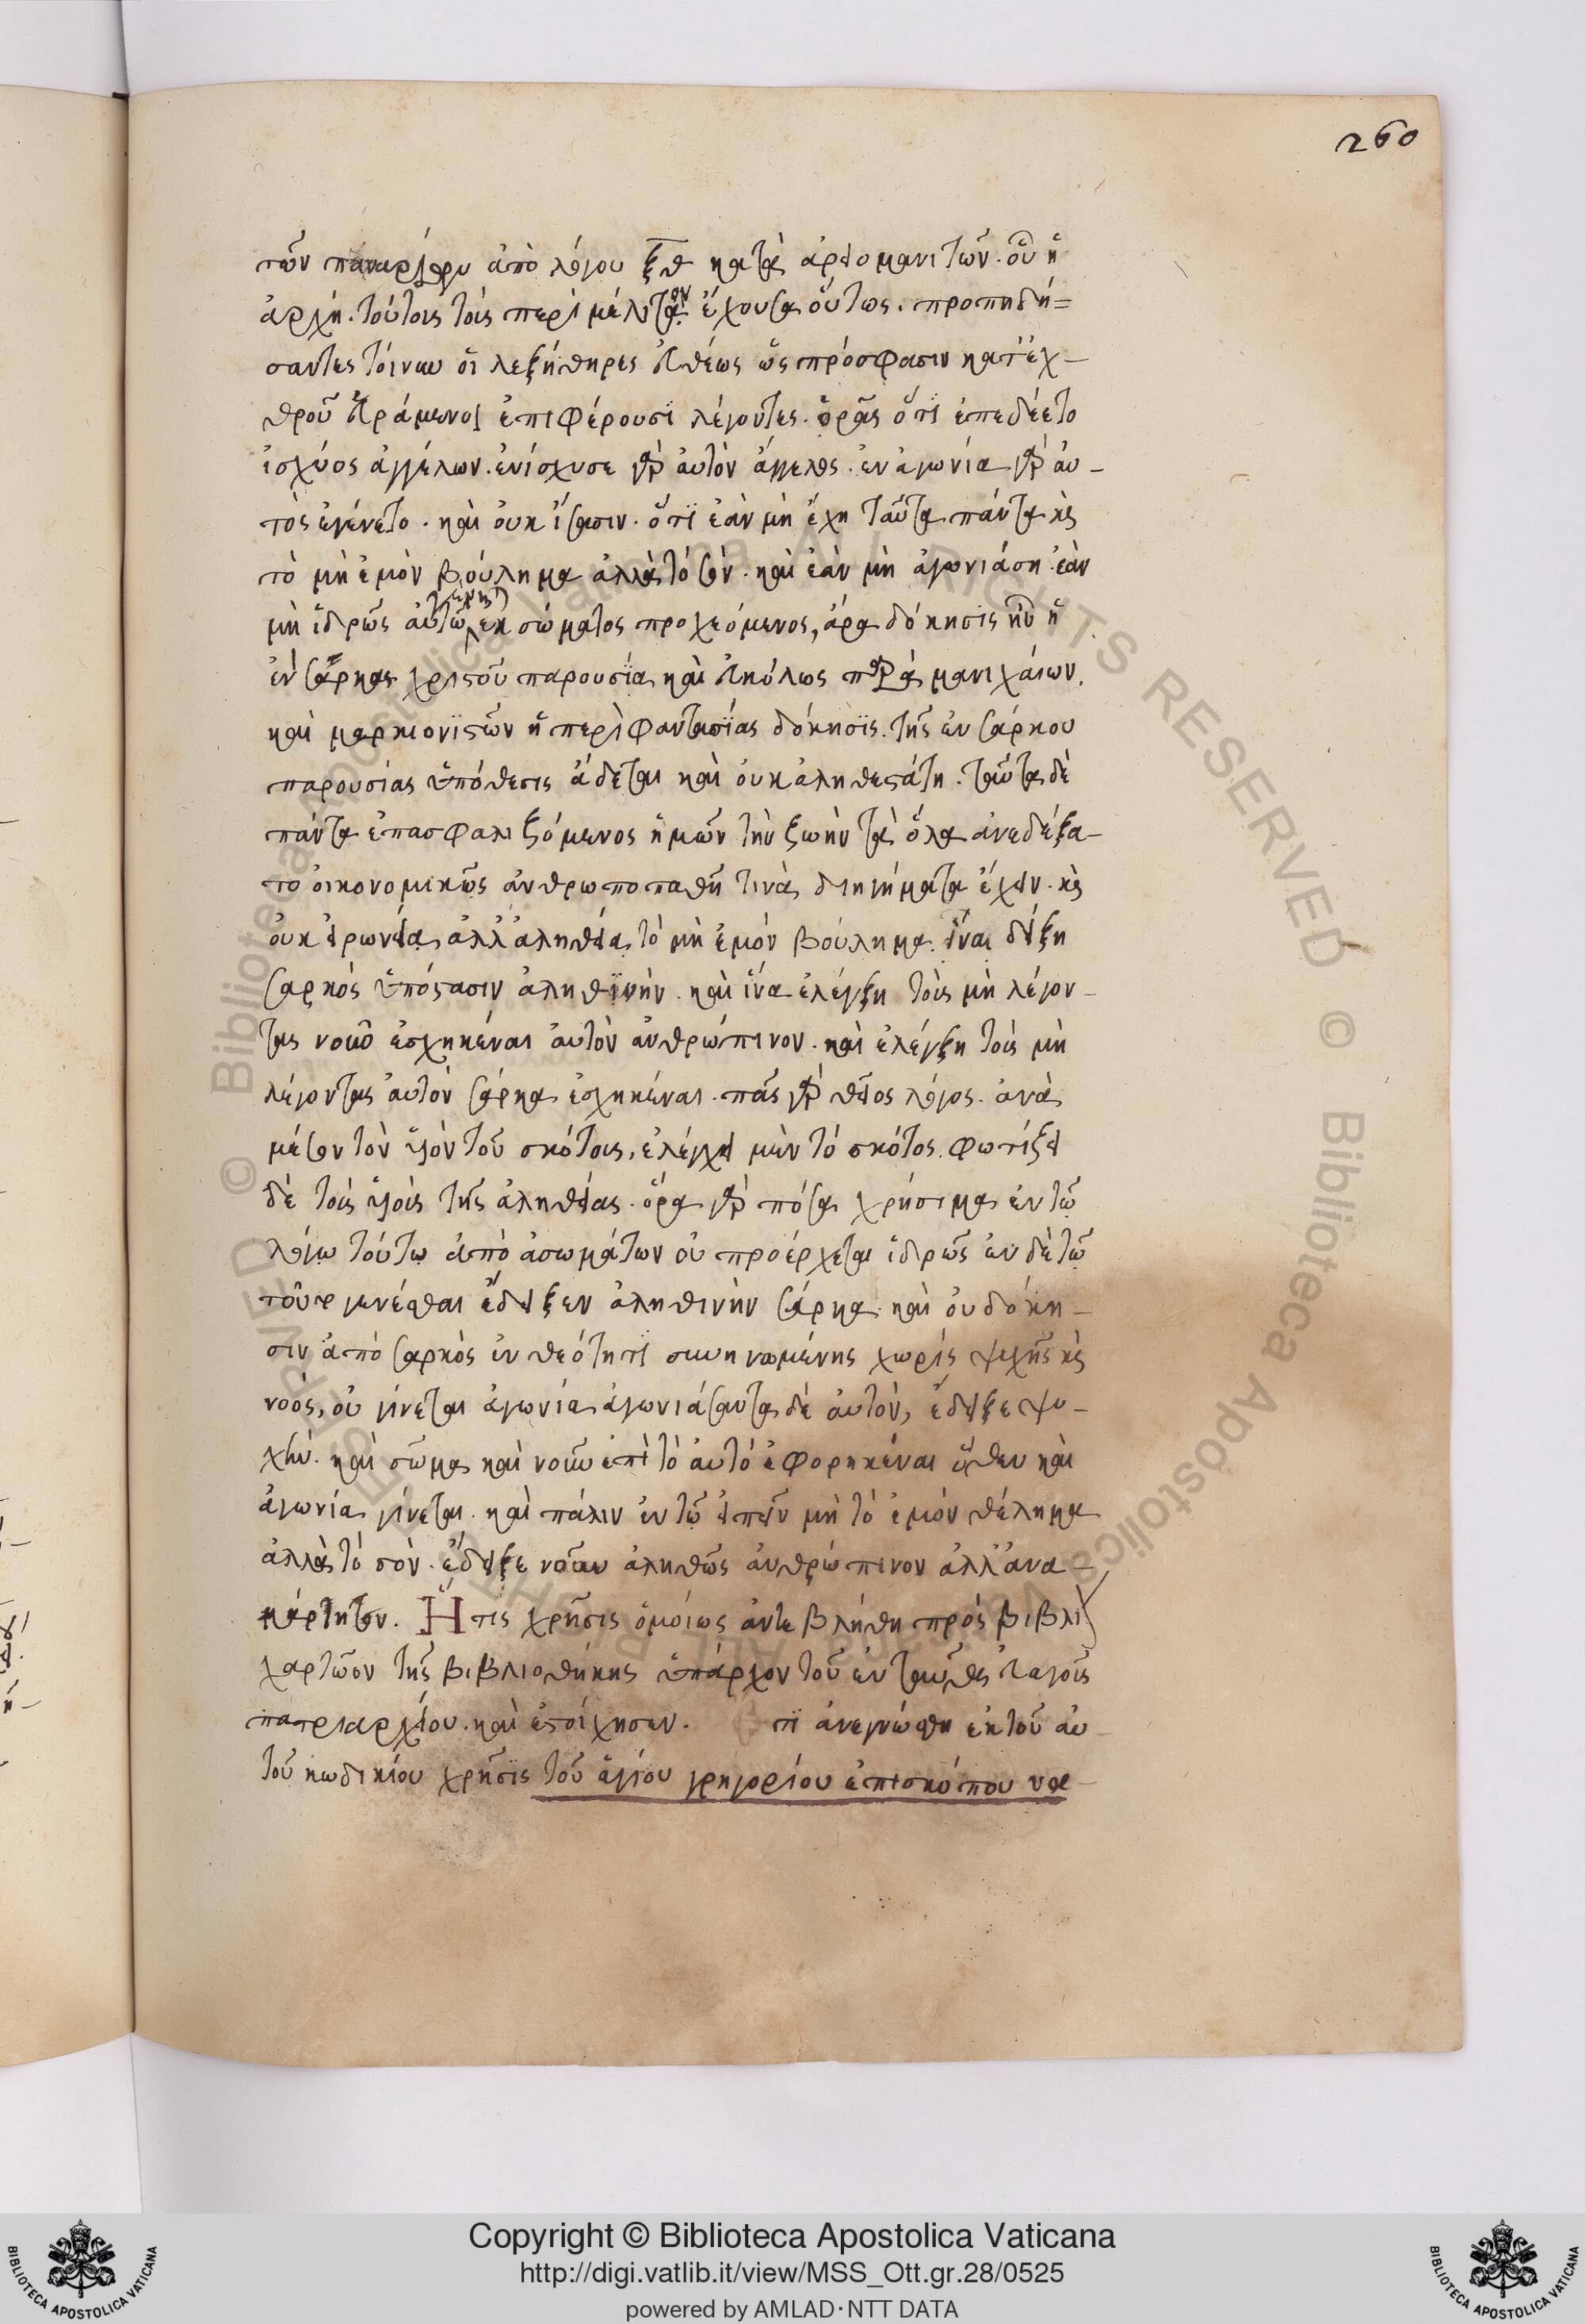 260
τῶν παναρίου ἀπὸ λόγου ξθ κατὰ ἀρειομανιτῶν. οὗ ἡ
ἀρχή. τούτοις τοῖς περὶ μελιτῶν ἔχουσα οὕτως. προπηδή=
σαντες τοίνυν οἱ λεξιθῆρες εὐθέως ὡς πρόσφασιν κατ' ἐχ-
θροῦ εὑράμενοι ἐπιφέρουσι λέγοντες. ὁρᾶς ὅτι ἐπεδέετο
ἰσχύος ἀγγέλων. ἐνίσχυσε γὰρ αὐτὸν ἄγγελος. ἐν ἀγωνία γὰρ αὐ-
τὸς ἐγένετο. καὶ οὐκ ἴσασιν. ὅτι ἐὰν μὴ ἔχη ταῦτα πάντα κς
τὸ μὴ ἐμὸν βούλημα ἀλλὰ τὸ σόν. καὶ ἐὰν μὴ ἀγωνιάση. ἐὰν
μὴ ἱδρῶς αὐτῶ ἐκ σώματος προχεόμενος, ἄρα δόκησις ἦν ἡ
ἐν σάρκας χριστοῦ παρουσία, καὶ εὐκόλως παρὰ μανιχαίων.
καὶ μαρκιονιστῶν ἡ περὶ φαντασίας δόκησις. τῆς ἐν σάρκου
παρουσίας ὑπόθεσις ἄδεται καὶ οὐκ ἀληθεστάτη. ταῦτα δὲ
πάντα ἐπασφαλιζόμενος ἡμῶν τὴν ζωὴν τὰ ὅλα ἀνεδέξα-
το οἰκονομικῶς ἀνθρωποπαθῆ τινὰ διηγήματα ἔχειν. κς
οὐκ εἰρωνεία, ἀλλ' ἀληθεία, τὸ μὴ ἐμὸν βούλημα. ἵνα δείξη
σαρκὸς ὑπόστασιν ἀληθινήν. καὶ ἵνα ἐλέγξη τοὺς μὴ λέγον-
τας νοῦν ἐσχηκέναι αὐτὸν ἀνθρώπινον. καὶ ἐλέγξη τοὺς μὴ
λέγοντας αὐτὸν σάρκα ἐσχηκέναι. πᾶς γὰρ θεῖος λόγος. ἀνὰ
μέσον τὸν υἱὸν τοῦ σκότους, ἐλέγχει μὲν τὸ σκότος. φωτίζει
δὲ τοὺς υἱοὺς τῆς ἀληθείας. ὅρα γὰρ πόσα χρήσιμα ἐν τῶ
λόγω τούτω ἀπὸ ἀσωμάτων οὐ προέρχεται ἱδρῶς ἐν δὲ τῶ
τοῦτο γενέσθαι ἔδειξεν ἀληθινὴν σάρκα. καὶ οὐ δόκη-
σιν ἀπὸ σαρκὸς ἐν θεότητι συνηνωμένης χωρὶς ψυχῆς κς
νοός, οὐ γίνεται ἀγωνία, ἀγωνιάσαντα δὲ αὐτόν, ἔδειξε ψυ-
χήν. καὶ σῶμα καὶ νοῦν ἐπὶ τὸ αὐτὸ ἐφορηκέναι ὅθεν καὶ
ἀγωνία γίνεται. καὶ πάλιν ἐν τῶ εἰπεῖν μὴ τὸ ἐμὸν θέλημα
ἀλλὰ τὸ σόν. ἔδειξε νοῦν ἀληθῶς ἀνθρώπινον ἀλλ' ἀνα-
μάρτητον. Ἥτις χρῆσις ὁμοίως ἀντεβλήθη πρὸς βιβλί
χαρτῶον τῆς βιβλιοθήκης ὑπάρχον τοῦ ἐνταῦθα εὐαγοῦς
πατριαρχείου. καὶ ἐστοίχησεν. τι ἀνεγνώσθη ἐκ τοῦ αὐ-
τοῦ κωδικίου χρῆσις τοῦ ἁγίου γρηγορίου ἐπισκόπου νσ-
Copyright © Biblioteca Apostolica Vaticana
http://digi.vatlib.it/view/MSS_Ott.gr.28/0525
powered by AMLAD·NTT DATA